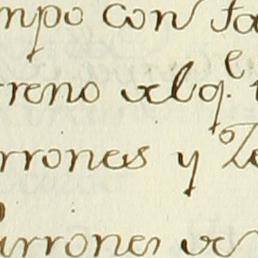 mpo con ta
e
rreno xlq.
rrones y Ze
urrones x